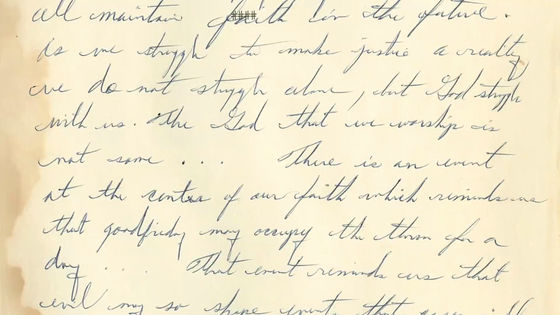 all maintain faith in the future.
As we struggle to make justice a reality
we do not struggle alone, but God struggle
with us. The God that we worship is
not some .... There is an event
at the center of our faith which reminds us
that goodfriday may occupy the thron for a
day .... That event reminds us that
evil may so shape events that